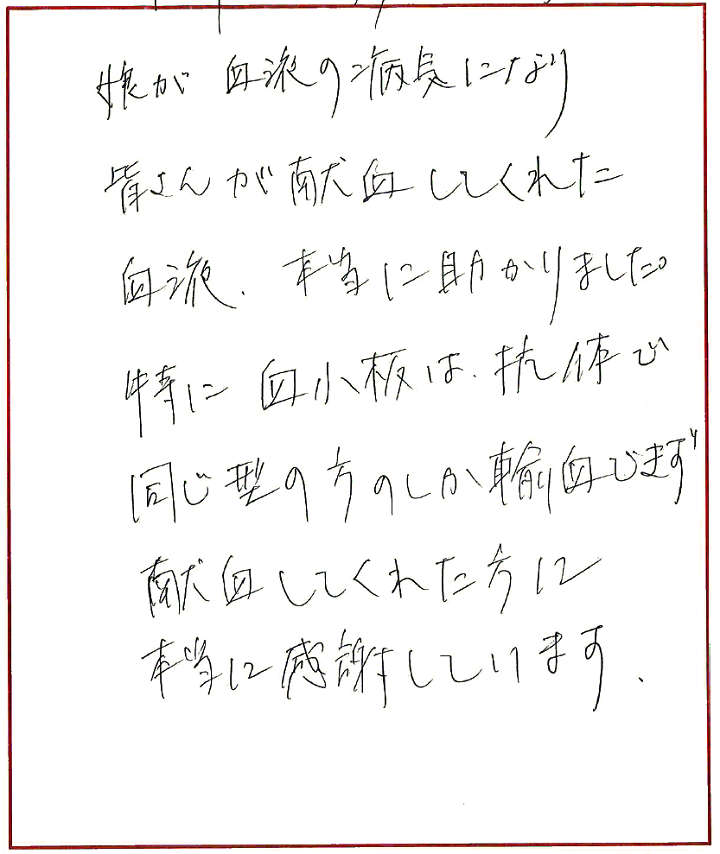 娘が 血液の病気になり
皆さんが献血してくれた
血液、本当に助かりました。
特に 血小板は、抗体で
同じ型の方のしか輸血できず
献血してくれた方に
本当に感謝しています.